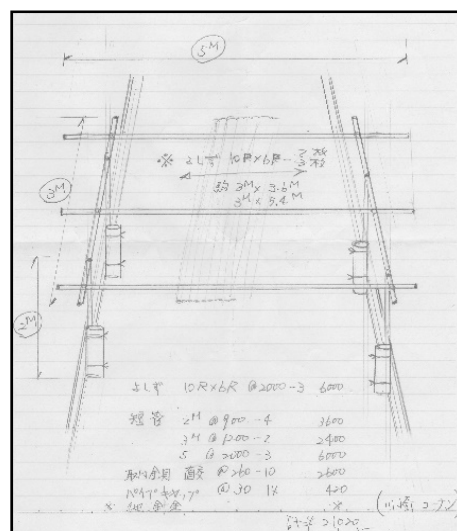 5M
※ よしず 10尺×6尺 - 3枚
約 3M × 3.6M
3M × 5.4M
3M
2M
よしず 10尺×6尺 @2000-3 6000
短管 2M @900-4 3600
3M @1200-2 2400
5 @2000-3 6000
取付金具 直交 @260-10 2600
パイプキャップ @30 14 420
※
計 21020